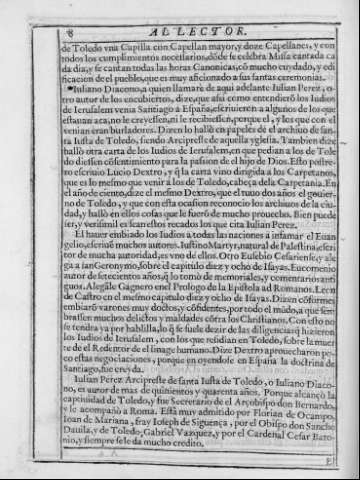 8 AL LECTOR.
de Toledo vna Capilla con Capellan mayor, y doze Capellanes, y con
todos los cumplimientos necessarios, dõde se celebra Missa cantada ca
da dia, y se cantan todas las horas Canonicas, cõ mucho cuydado, y edi
ficacion de el pueblo, que es muy aficionado a sus santas ceremonias.
Iuliano Diacono, a quien llamarè de aqui adelante Iulian Perez, o
tro autor de los encubiertos, dize, que assi como entendierõ los Iudios
de Ierusalem venia Santiago a España, escriuieren a algunos de los que
estauan aca, no le creyessen, ni le recibiessen, porque el, y los que con el
venian eran burladores. Dizen lo hallò en papeles de el archiuo de san-
ta Iusta de Toledo, siendo Arcipreste de aquella yglesia. Tambien dize
hallò otra carta de los Iudios de Ierusalem, en que pedian a los de Tole
do diessen cõsentimiento para la passion de el hijo de Dios. Esto postre-
ro escriuio Lucio Dextro, y q̃ la carta vino dirigida a los Carpetanos,
que es lo mesmo que venir a los de Toledo, cabeça dela Carpetania. En
el año de ciento, dize el mesmo Dextro, que el tuuo dos años el gouier-
no de Toledo, y que con esta ocasion reconocio los archiuos de la ciu-
dad, y hallò en ellos cosas que le fuerõ de mucho prouecho. Bien puede
ser, y verisimil es sean estos recados los que cita Iulian Perez.
El hauer embiado los Iudios a todas las naciones a infamar el Euan
gelio, escriuē muchos autores. Iustino Martyr, natural de Palestina, escri
tor de mucha autoridad, es vno de ellos. Otro Eusebio Cesariense, y ale
ga a san Geronymo, sobre el capitulo diez y ocho de Isayas. Es comento
autor de setecientos años, q̃ lo tomò de memoriales, y comentarios anti
guos. Alegale Gagnero en el Prologo de la Epistola ad Romanos. Leon
de Castro en el mesmo capitulo diez y ocho de Isayas. Dizen cõformes
embiarõ varones muy doctos, y cõfidentes, por todo el mũdo, a que sem
brassen muchos delictos y maldades contra los Christianos. Con esto no
se tendra ya por hablilla, lo q̃ se suele dezir de las diligencias q̃ hizieron
los Iudios de Ierusalem, con los que residian en Toledo, sobre la muer
te de el Redentor de el linage humano. Dize Dextro aprouecharon po-
co estas negociaciones, porque en oyendose en España la doctrina de
Santiago, fue creyda.
Iulian Perez Arcipreste de santa Iusta de Toledo, o Iuliano Diaco-
no, es autor de mas de quinientos y quarenta años. Porque alcançò la
captiuidad de Toledo, y fue Secretario de el Arçobispo don Bernardo,
y le acompañò a Roma. Està muy admitido por Florian de Ocampo,
Ioan de Mariana, fray Ioseph de Siguença, por el Obispo don Sancho
Dauila, y de Toledo, Gabriel Vazquez, y por el Cardenal Cesar Baro-
nio, y siempre se le da mucho credito.